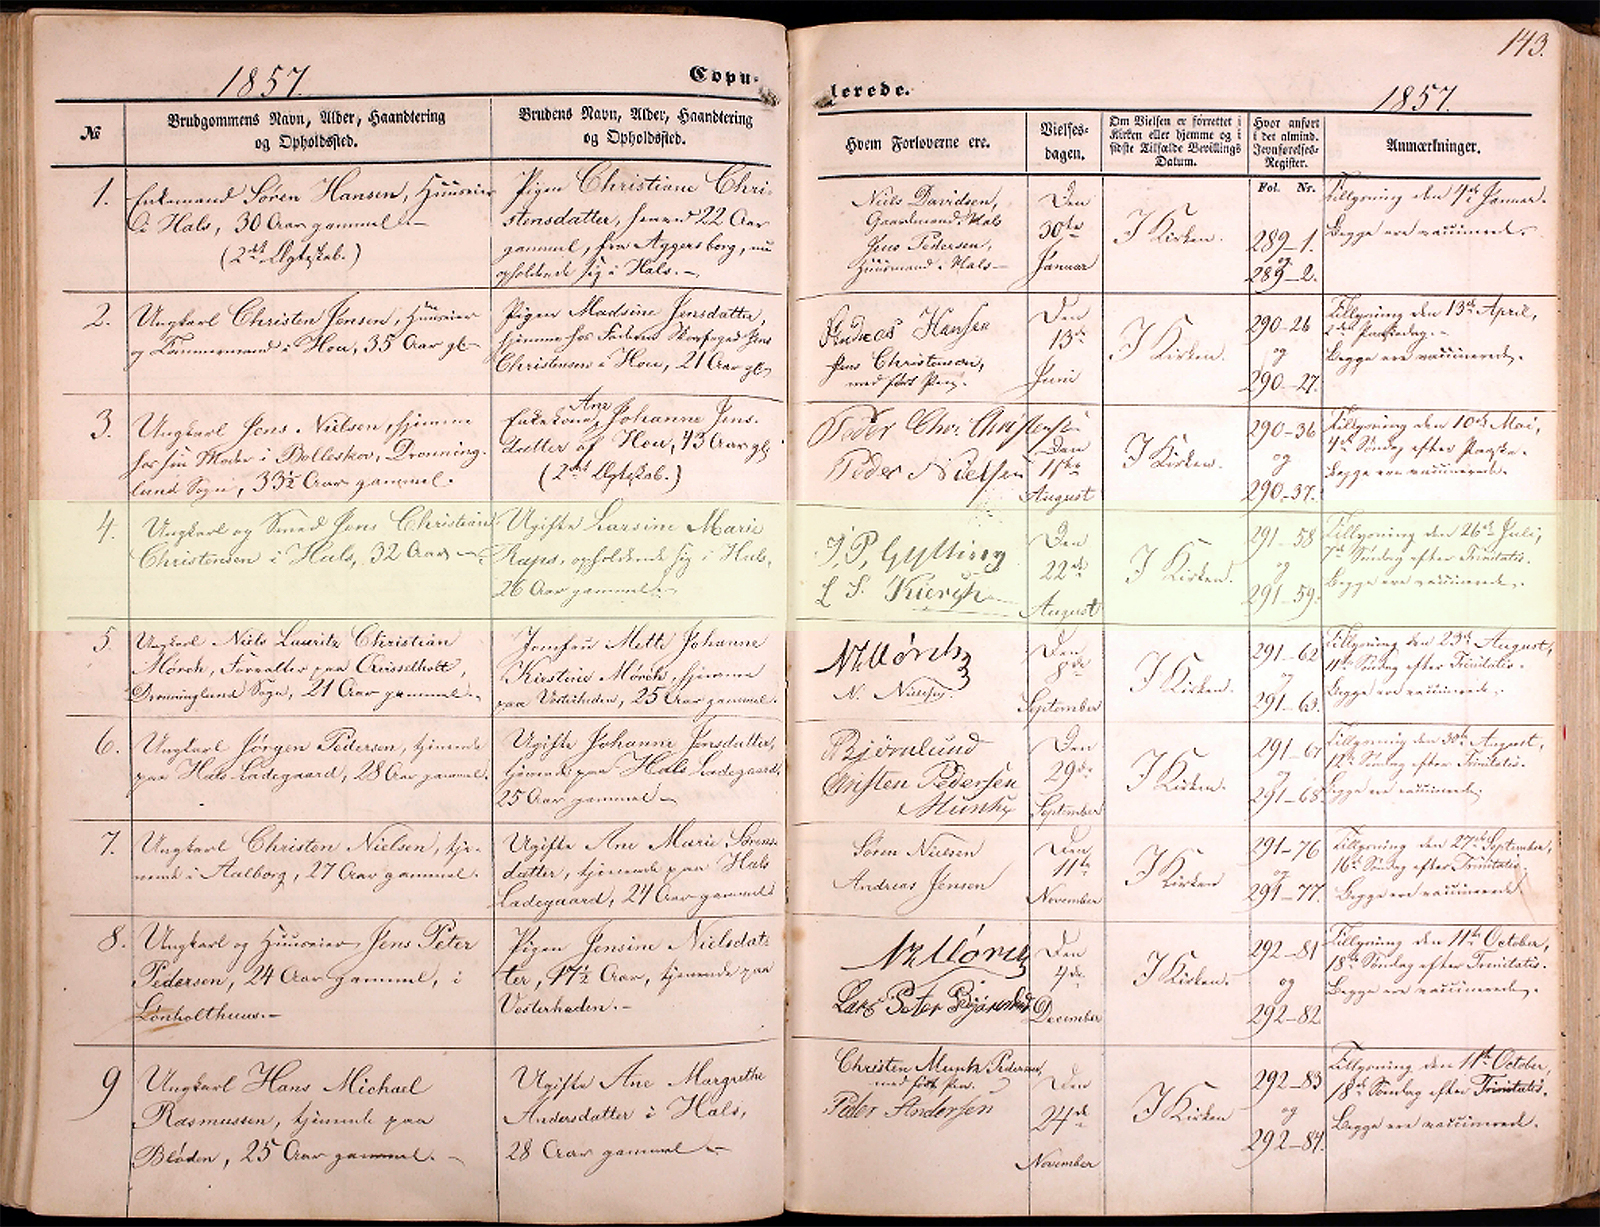 143.
1857.
Copu-
lerede.
1857.
№
Brudgommens Navn, Alder, Haandtering
og Opholdssted.
Brudens Navn, Alder, Haandtering
og Opholdssted.
Hvem Forloverne ere.
Vielses-
dagen.
Om Vielsen er forrettet i
Kirken eller hjemme og i
sidste Tilfælde Bevillings
Datum.
Hvor anført
i det almind.
Jevnførelses-
Register.
Anmærkninger.
Fol. Nr.
1.
Enkemand Søren Hansen, Huuseier
i Hals, 30 Aar gammel.
(2det Ægteskab.)
Pigen Christiane Chri-
stensdatter, 22 Aar
gammel, fra Aggersborg, nu
opholdende sig i Hals.
Niels Davidsen,
Gaardmand i Hals
Jens Pedersen,
Huusmand i Hals
Den
30te
Januar
I Kirken.
289-1.
og
289-2.
Tillysning den 4de Januar.
Begge ere vaccinerede.
2.
Ungkarl Christen Jensen, Huuseier
og Tømmermand i Hou, 35 Aar gl.
Pigen Madsine Jensdatter,
hjemme hos Faderen Skovfoged Jens
Christensen i Hou, 21 Aar gl.
Andreas Hansen
Jens Christensen,
med ført Pen.
Den
13de
Juni
I Kirken.
290-26
og
290-27.
Tillysning den 13de April,
2den Paaskedag.
Begge ere vaccinerede.
3.
Ungkarl Jens Nielsen, hjemme
hos sin Moder i Bolleskov, Dronning-
lund Sogn, 33½ Aar gammel.
Ane
Enkekone Johanne Jens-
datter af Hou, 43 Aar gl.
(2det Ægteskab.)
Peder Chr. Christensen
Peder Nielsen
Den
11te
August
I Kirken.
290-36
og
290-37.
Tillysning den 10de Mai,
4de Søndag efter Paaske.
Begge ere vaccinerede.
4.
Ungkarl og Smed Jens Christian
Christensen i Hals, 32 Aar
Ugifte Larsine Marie
opholdende sig i Hals,
26 Aar gammel.
J. P. Gylling
L S. Kiersch
Den
22de
August
I Kirken.
291-58
og
291-59.
Tillysning den 26de Juli,
7de Søndag efter Trinitatis.
Begge ere vaccinerede.
5.
Ungkarl Niels Lauritz Christian
Mørch, Forvalter paa
Dronninglund Sogn, 21 Aar gammel.
Jomfru Mette Johanne
Kirstine Mørch, hjemme
paa Vesterheden, 25 Aar gammel.
N Mørch
N. Nielsen
Den
8de
September
I Kirken.
291-62
og
291-63.
Tillysning den 23de August,
11te Søndag efter Trinitatis.
Begge ere vaccinerede.
6.
Ungkarl Jørgen Pedersen, tjenende
paa Hals Ladegaard, 28 Aar gammel.
Ugifte Johanne Jensdatter,
tjenende paa Hals Ladegaard,
25 Aar gammel
Bjørnlund
Christen Pedersen
Munk
Den
29de
September
I Kirken.
291-67
og
291-68
Tillysning den 30te August,
12te Søndag efter Trinitatis.
Begge ere vaccinerede.
7.
Ungkarl Christen Nielsen, tje-
nende i Aalborg, 27 Aar gammel.
Ugifte Ane Marie Sørens-
datter, tjenende paa Hals
Ladegaard, 24 Aar gammel
Søren Nielsen
Andreas Jensen
Den
11te
November
I Kirken
291-76
og
291-77.
Tillysning den 27de September,
16de Søndag efter Trinitatis.
Begge ere vaccinerede.
8.
Ungkarl og Huuseier Jens Peter
Pedersen, 24 Aar gammel, i
Lønholthuus.
Pigen Jensine Nielsdat-
ter, 17½ Aar, tjenende paa
Vesterheden.
N Mørch
Lars Peter Bjørnlund
Den
4de
December
I Kirken.
292-81
og
292-82
Tillysning den 11te October,
18de Søndag efter Trinitatis.
Begge ere vaccinerede.
9
Ungkarl Hans Michael
Rasmussen, tjenende paa
Bløden, 25 Aar gammel.
Ugifte Ane Margrethe
Andersdatter i Hals,
28 Aar gammel
Christen Munk Pedersen,
med ført Pen.
Peder Andersen
Den
24de
November
I Kirken
292-83
og
292-84.
Tillysning den 11te October,
18de Søndag efter Trinitatis.
Begge ere vaccinerede.